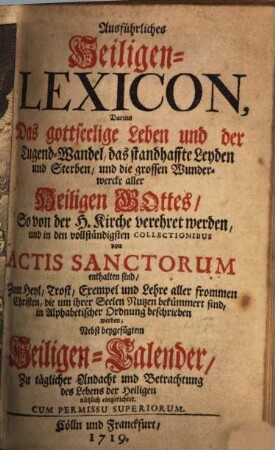 Ausführliches
Heiligen-
LEXICON,
Darinn
Das gottseelige Leben und der
Tugend-Wandel, das standhaffte Leyden
und Sterben, und die grossen Wunder-
wercke aller
Heiligen GOttes/
So von der H. Kirche verehret werden,
und in den vollständigsten COLLECTIONIBUS
von
ACTIS SANCTORUM
enthalten sind/
Zum Heyl, Trost, Exempel und Lehre aller frommen
Christen, die um ihrer Seelen Nutzen bekümmert sind,
in Alphabetischer Ordnung beschrieben
werden,
Nebst beygefügtem
Heiligen-Calender/
Zu täglicher Andacht und Betrachtung
des Lebens der Heiligen
nützlich eingerichtet.
CUM PERMISSU SUPERIORUM.
Cölln und Franckfurt,
1719.